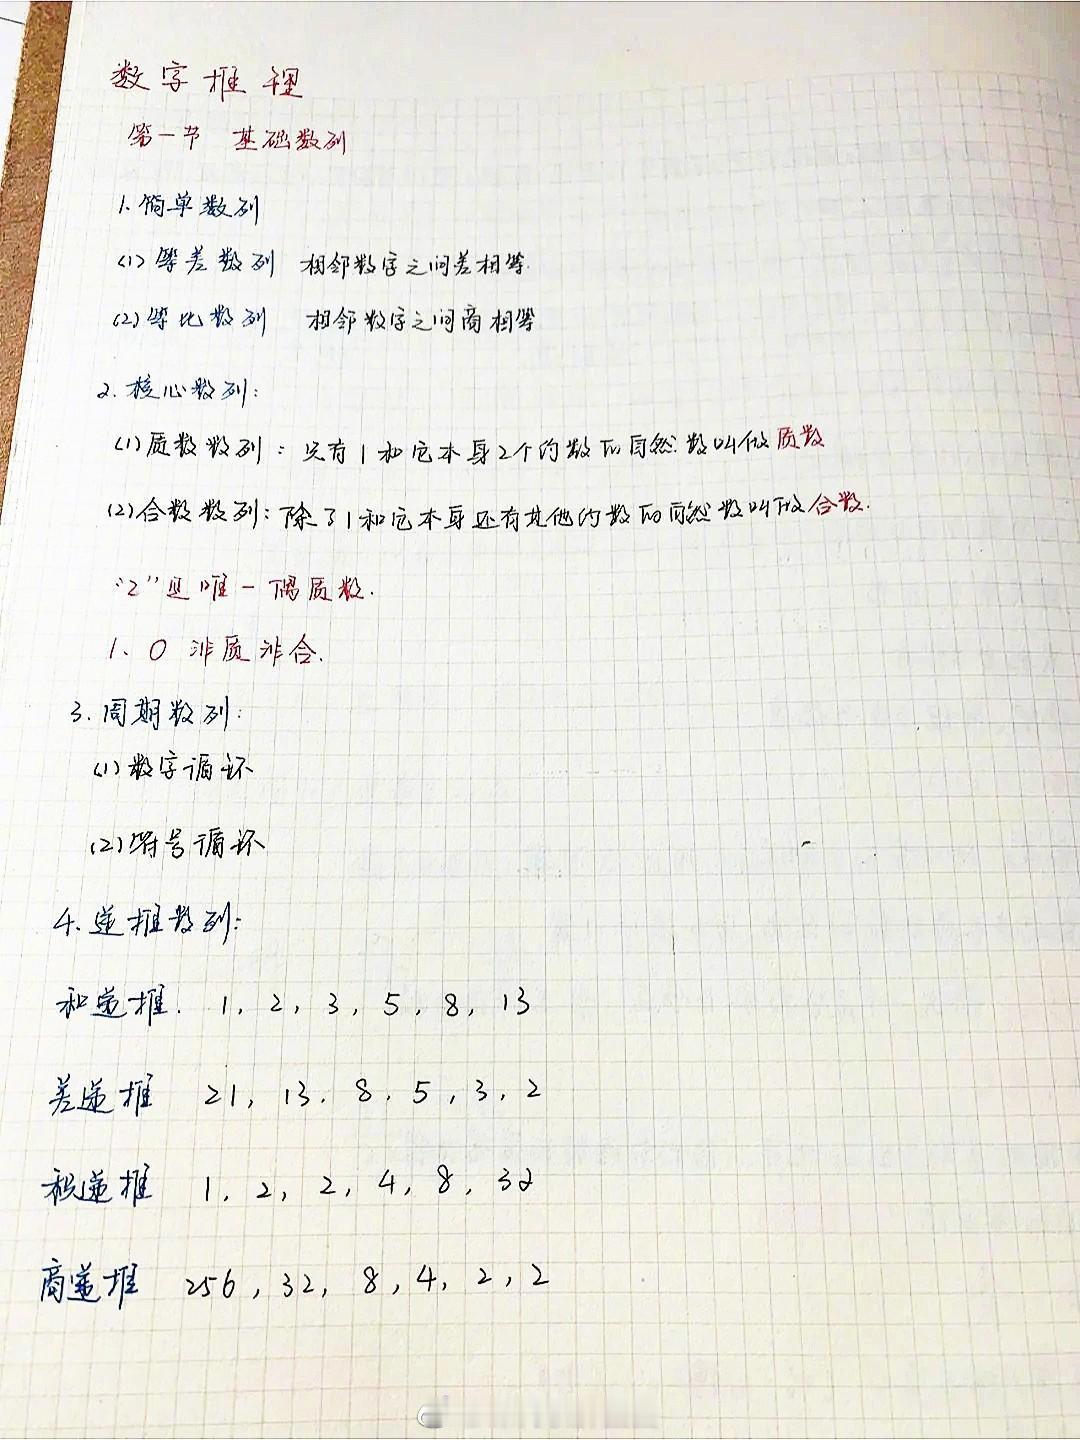 数字推理
第一节 基础数列
1.简单数列
(1)等差数列 相邻数字之间差相等.
(2)等比数列 相邻数字之间商相等
2.核心数列:
(1)质数数列:只有1和它本身2个约数的自然数叫做质数
(2)合数数列:除了1和它本身还有其他约数的自然数叫做合数.
"2"是唯一偶质数.
1、0 非质非合.
3.周期数列:
(1)数字循环
(2)符号循环
4.递推数列:
和递推. 1, 2, 3, 5, 8, 13
差递推 21, 13. 8. 5, 3, 2
积递推 1, 2, 2, 4, 8, 32
商递推 256, 32, 8, 4, 2, 2